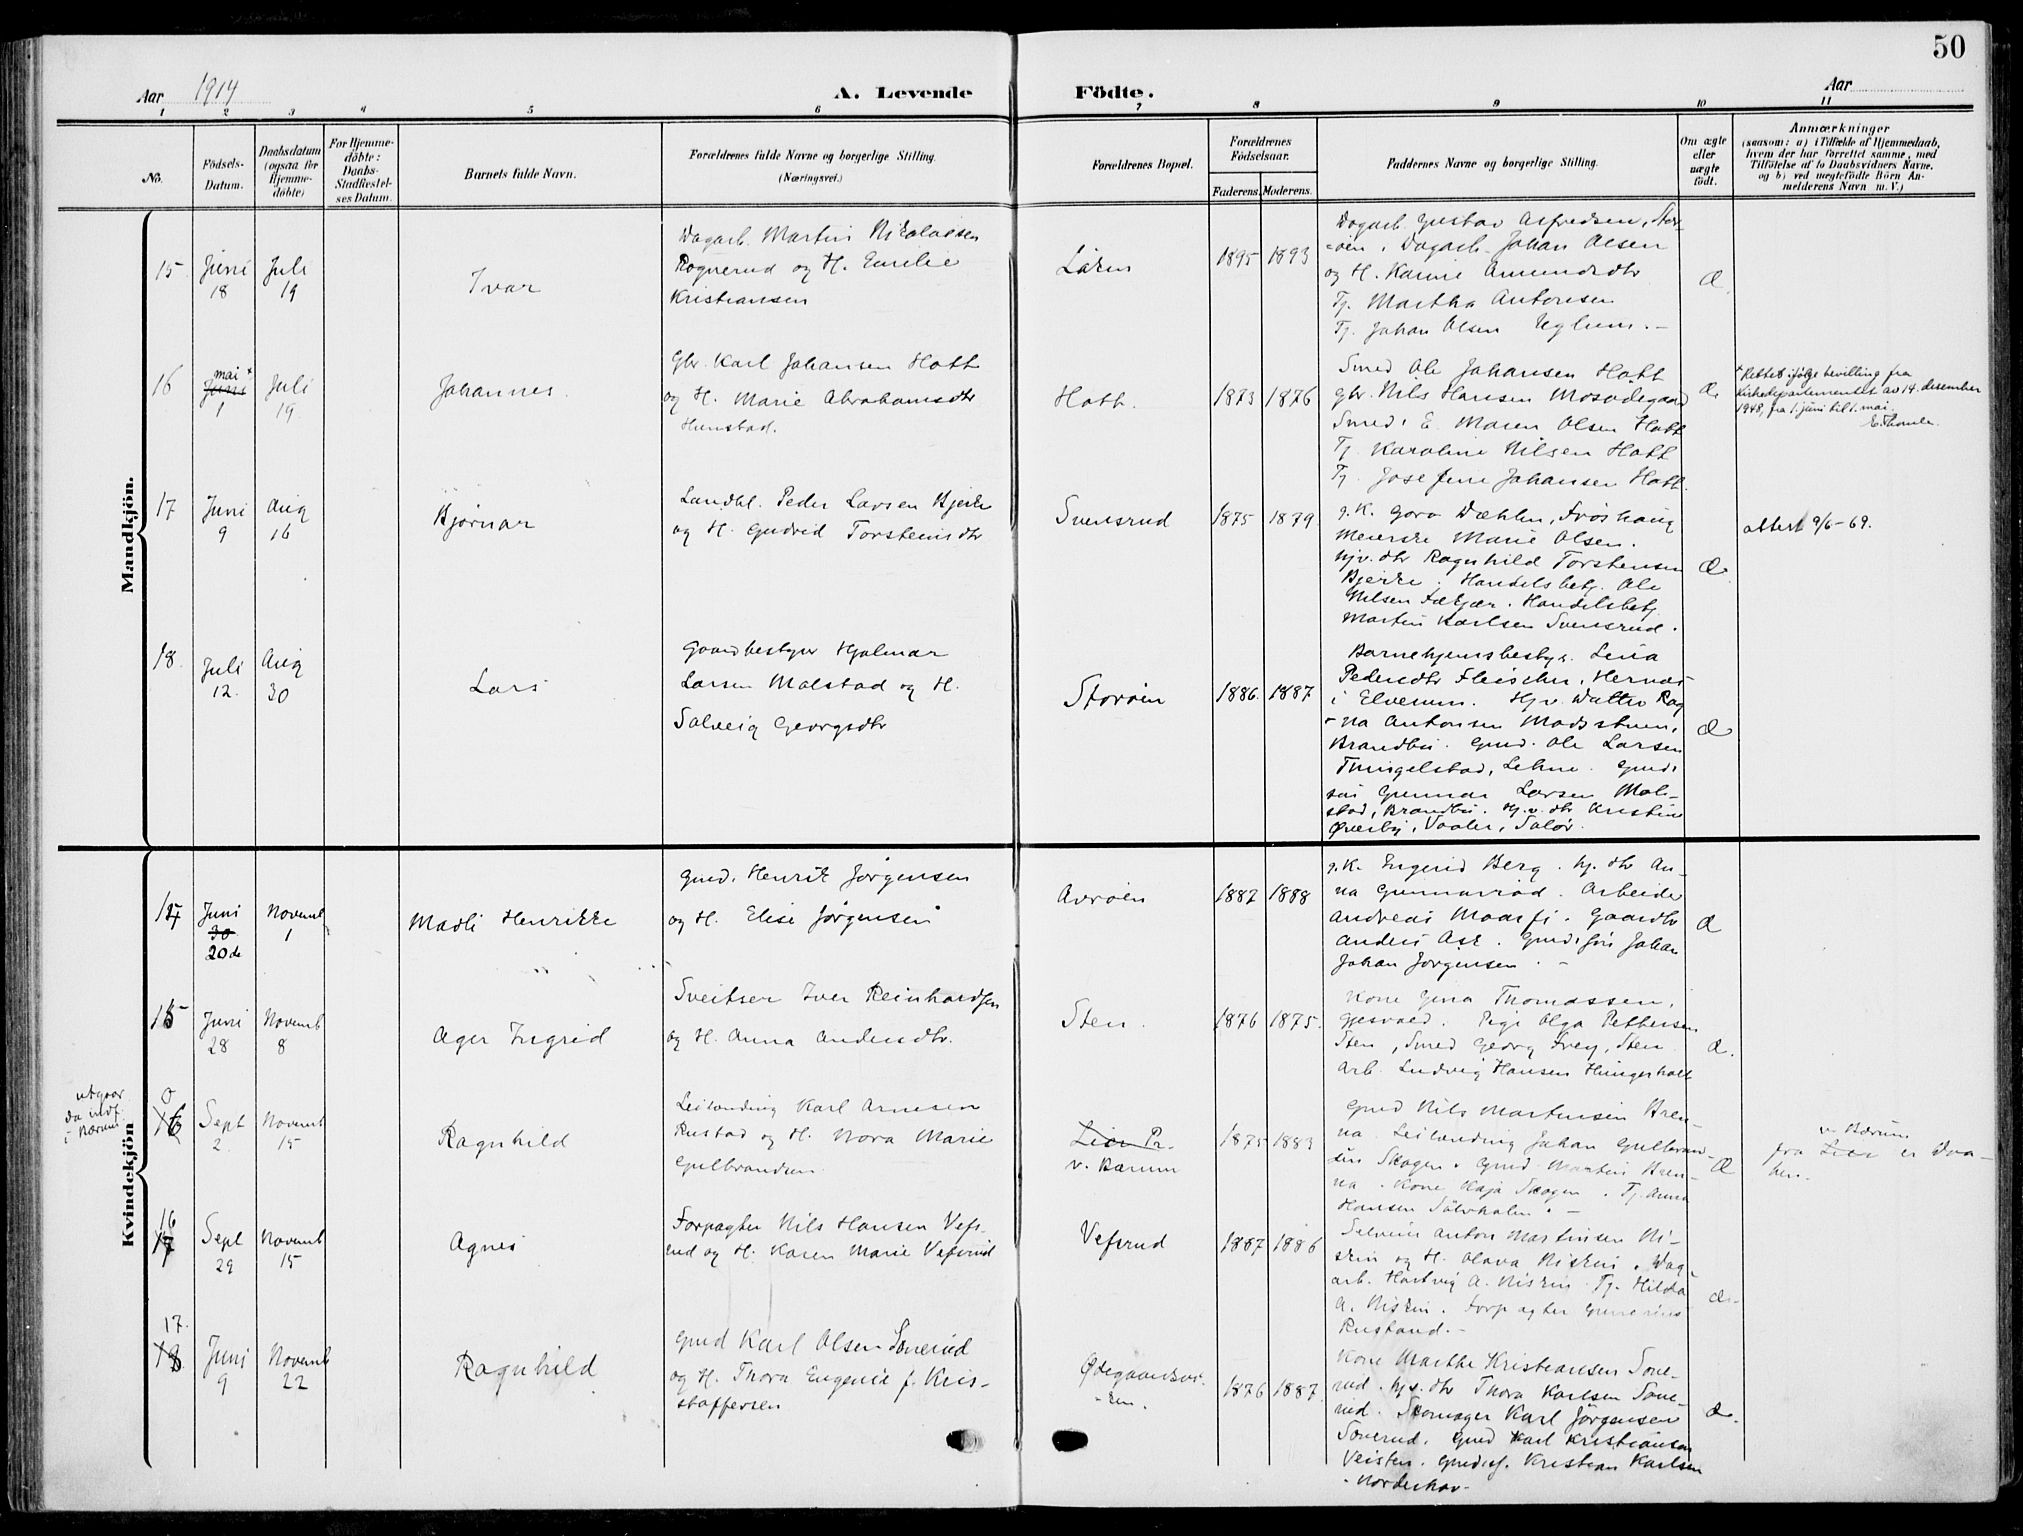 50
Aar 1914
A. Levende
Födte.
Aar
1 2 3 4 5 6 7 8 9 10 11
No.
Födsels-
Datum.
Daabsdatum
(ogsaa for
Hjemme-
döbte)
For Hjemme-
döbte:
Daabs-
Stadfæstel-
ses Datum.
Barnets fulde Navn.
Forældrenes fulde Navne og borgerlige Stilling.
(Næringsvei.)
Forældrenes Bopæl.
Forældrenes
Födselsaar.
Faderens.
Moderens.
Faddernes Navne og borgerlige Stilling.
Om ægte
eller
uægte
födt.
Anmærkninger
(saasom: a) i Tilfælde af Hjemmedaab,
hvem der har forrettet samme, med
Tilföielse af to Daabsvidners Navne.
og b) ved uægtefödte Börn An-
melderens Navn m. V.)
Mandkjön.
15
Juni
18
Juli
19
Ivar
Dagarb. Martin Nikolaisen
Rognerud og H. Emilie
Kristiansen
1895
1893
Dagarb. Gustav Alfredsen, Stor-
øen, Dagarb. Johan Olsen
og H. Karine Amundsdtr
Tj. Martha Antonsen
Tj. Johan Olsen
Æ
16
mai +
Juni
1
Juli
19
Johannes.
Gbr. Karl Johansen Hatt
og H. Marie Abrahamsdtr
Hunstad.
Hatt.
1873
1876
Smed Ole Johansen Hatt
gbr. Nils Hansen Mosødegaard
Smed, E. Maren Olsen Hatt
Tj. Karoline Nilsen Hatt
Tj. Josefine Johansen Hatt.
Æ
+ Rettet ifølge bevilling fra
Kirkedepartementet av 14. desember
1948, fra 1. juni til 1. mai.
17
Juni
9
Aug
16
Bjørnar
Landhl. Peder Larsen Bjerke
og H. Gudrid Torsteinsdtr
Svensrud
1875
1879
p.K. Gora Dæhlen, Frøshaug
Meierske Marie Olsen.
hjv. dtr Ragnhild Torstensen
Bjerke. Handelsbetj. Ole
Nilsen Fækjær. Handelsbetj.
Martin Karlsen Svensrud.
Æ
attest 9/6-69.
18.
Juli
12.
Aug
30
Lars
Gaardbestyrer Hjalmar
Larsen Malstad og H.
Solveig Georgsdtr
Storøen
1886.
1887
Barnehjemsbestyr. Lina
Pedersdtr Fleischer, Hernes
i Elverum.
na Antonsen
Brandbu. Gmd. Ole Larsen
Thingelstad, Gmds
søn Gunnar Larsen Mal-
stad, Brandbu. Hj.v. dtr Kristine
Øverby, Vaaler, Solør.
Æ
Kvindekjön
14
Juni
30
20de
Novemb
1
Madli Henrikke
Gmd. Henrik Jørgensen
og H. Elise Jørgensen
Averøen
1887
1888
p.K. Engerid Berg. hj. dtr An-
na Gunnarud. Arbeider
Andreas Gaardbr
Anders Ask. Gmds søn Johan
Johan Jørgensen. -
Æ
15
Juni
28
Novemb
8
Ager Ingrid
Sveitser Iver Reinhardsen
og H. Anna Andersdtr.
Sten.
1876
1875.
Kone Gina Thomassen,
Gjesvold. Pige Olga Pettersen
Sten, Smed Georg Frey, Sten
arb. Ludvig Hansen Hungerholt
Æ.
utgaar
da indf.
i Bærum
0
16
Sept
2.
Novemb
15
Ragnhild
Leilænding Karl Arnesen
Rustad og H. Nora Marie
Gulbrandsen
Lien Pr.
v. Bærum
1875
1883
Gmd Nils Martinsen Bren-
na. Leilænding Johan Gulbrand-
sen Skogen. Gmd Martin Bren-
na. Kone Kaja Skogen. Tj. Anna
Hansen Sølvholen. -
Æ
v. Bærum
fra Lier er Daa-
ben.
16
17
Sept
29
Novemb
15
Agnes
Forpagter Nils Hansen Vefs-
rud og H. Karen Marie Vefsrud
Vefsrud
1887
1886
Selveier Anton Martinsen Ni-
skin og H. Olava Niskin, Dag-
arb. Hartvig A. Niskin. Tj. Hilda
A. Niskin. Forpagter Gunerius
Rustand. -
Æ
17.
18
Juni
9
Novemb
22
Ragnhild
Gmd Karl Olsen Sonerud
og H. Thora Eugenie f. Kris-
stoffersen
1876
1887
Kone Marthe Kristiansen Sone-
rud. hj.v. dtr Thora Karlsen Sone-
rud. Skomager Karl Jørgensen
Sonerud. Gmd Karl Kristiansen
Veisten. Gmds s. Kristian Karlsen
- Norderhov -
Æ.